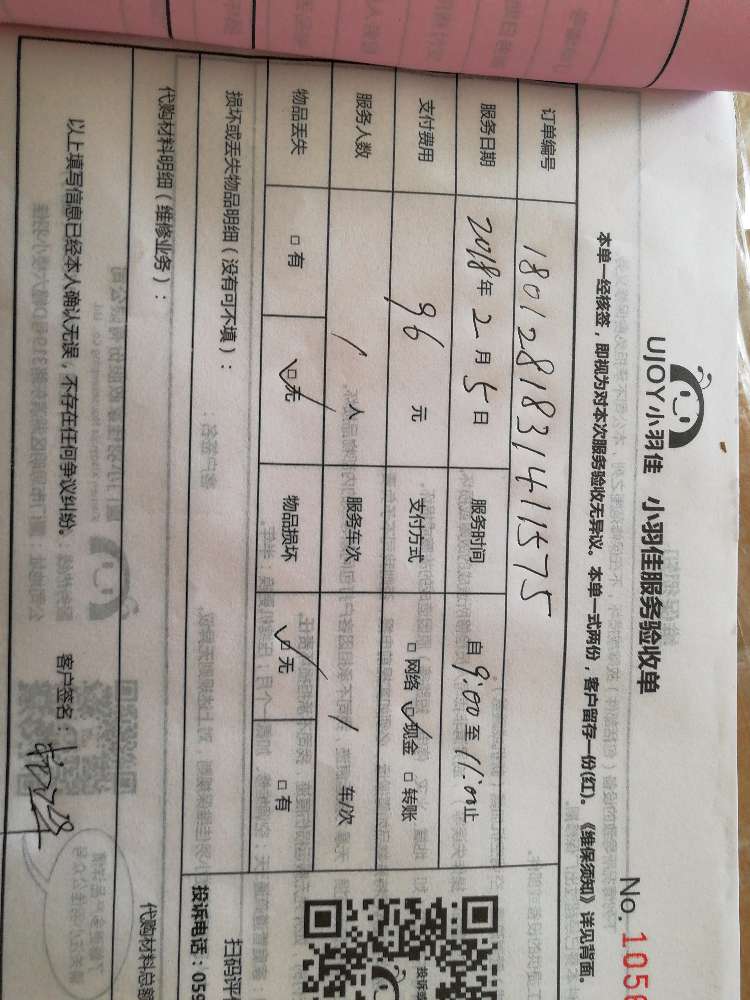 UJOY小羽佳 小羽佳服务验收单
No. 1058
本单一经核签，即视为对本次服务验收无异议。本单一式两份，客户留存一份(红)。《维保须知》详见背面。
订单编号 180128183141 1575
服务日期 2018年 2月 5日 服务时间 自 9:00 至 11:00止
支付费用 96 元 支付方式 □ 网络 ☑ 现金 □ 转账
服务人数 1 人 服务车次 1 车/次
物品丢失 □ 有 ☑ 无 物品损坏 ☑ 无 □ 有
损坏或丢失物品明细（没有可不填）：
扫码评
投诉电话：059
代购材料明细（维修业务）：
代购材料总额
以上填写信息已经本人确认无误，不存在任何争议纠纷。 客户签名：